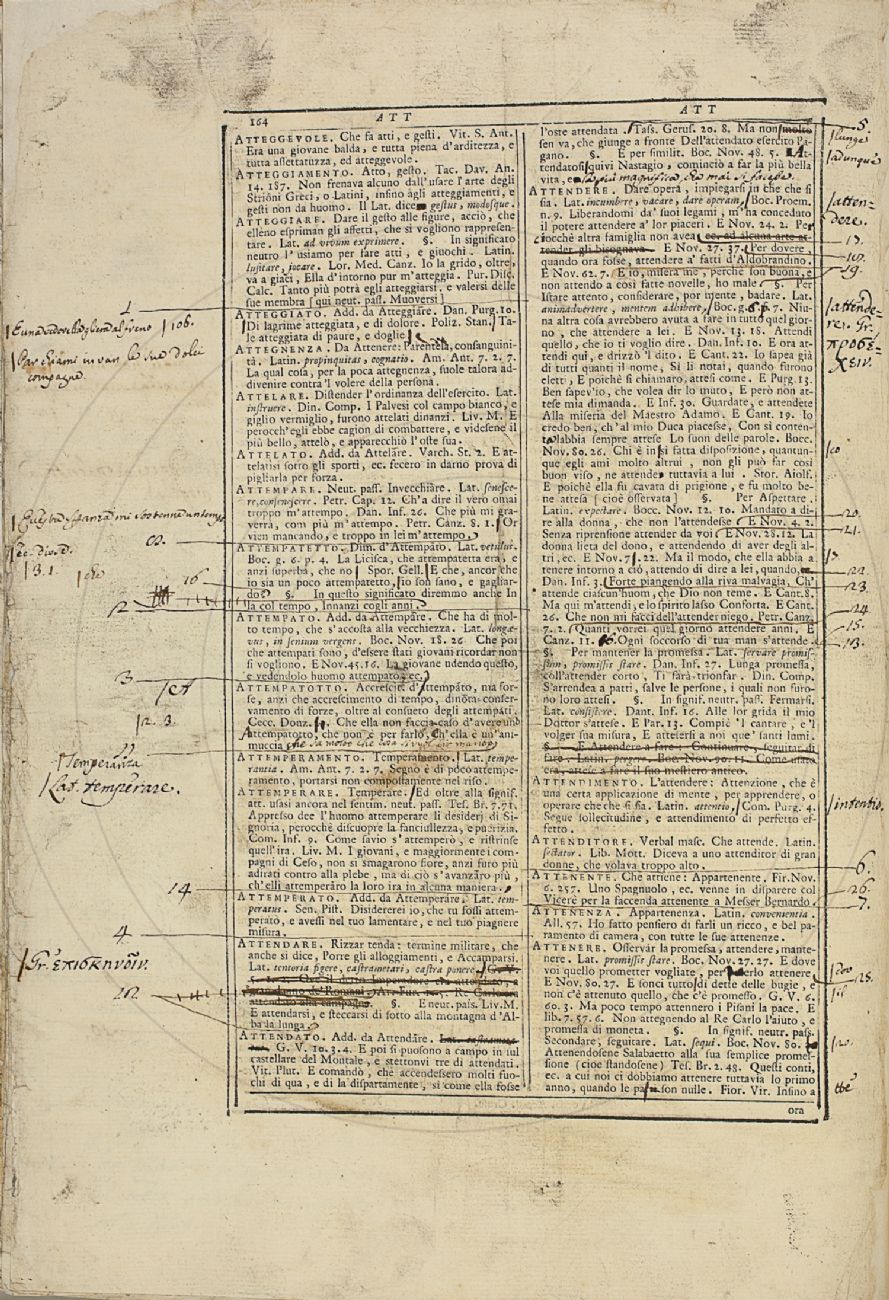 164
ATT
ATT
ATTEGGEVOLE. Che fa atti, e gesti. Vit. S. Ant.
Era una giovane balda, e tutta piena d'arditezza, e
tutta assettatuzza, ed atteggevole.
ATTEGGIAMENTO. Atto, gesto. Tac. Dav. An.
14. 187. Non frenava alcuno dall'usare l'arte degli
Strioni Greci, o Latini, insino agli atteggiamenti, e
gesti non da huomo. Il Lat. dice gestus, modosque.
ATTEGGIARE. Dare il gesto alle figure, acciò, che
elleno esprimano gli affetti, che si vogliono rappresen-
tare. Lat. ad vivum exprimere. §. In significato
neutro l'usiamo per fare atti, e giuochi. Latin.
lusitare, jocare. Lor. Med. Canz. Io la grido, oltre,
va a giaci, Ella d'intorno pur m'atteggia. Pur. Disc.
Calc. Tanto più potrà egli atteggiarsi, e valersi delle
sue membra [qui neut. pass. Muoversi]
ATTEGGIATO. Add. da Atteggiare. Dan. Purg. 10.
Di lagrime atteggiata, e di dolore. Poliz. Stan. Ta-
le atteggiata di paure, e doglie
ATTEGNENZA. Da Attenere: Parentela, consanguini-
tà. Latin. propinquitas, cognatio. Am. Ant. 7. 2. 7.
La qual cosa, per la poca attegnenza, suole talora ad-
divenire contra'l volere della persona.
ATTELARE. Distender l'ordinanza dell'esercito. Lat.
instruere. Din. Comp. I Palvesi col campo bianco, e
giglio vermiglio, furono attelati dinanzi. Liv. M. E
perocch'egli ebbe cagion di combattere, e videsene il
più bello, attelò, e apparecchiò l'oste sua.
ATTELATO. Add. da Attelare. Varch. St. 2. E at-
telatisi sotto gli sporti, ec. fecero in darno prova di
pigliarla per forza.
ATTEMPARE. Neut. pass. Invecchiare. Lat. senesce-
re, consenescere. Petr. Cap. 12. Ch'a dire il vero omai
troppo m'attempo. Dan. Inf. 26. Che più mi gra-
verrà, com più m'attempo. Petr. Canz. 8. 1. Or
vien mancando, e troppo in lei m'attempo.
ATTEMPATETTO. Dim. d'Attempato. Lat. vetulus.
Boc. g. 6. p. 4. La Licisca, che attempatetta era, e
anzi superba, che no Spor. Gell. E che, ancor che
io sia un poco attempatetto, io son sano, e gagliar-
do? §. In questo significato diremmo anche In
là col tempo, Innanzi cogli anni.
ATTEMPATO. Add. da Attempare. Che ha di mol-
to tempo, che s'accosta alla vecchiezza. Lat. longæ-
vus, in senium vergens. Boc. Nov. 18. 26 Che poi
che attempati sono, d'essere stati giovani ricordar non
si vogliono. E Nov. 45. 16. La giovane udendo questo,
e vedendolo huomo attempato, ec.
ATTEMPATOTTO. Accrescit. d'Attempato, ma for-
se, anzi che accrescimento di tempo, dinota conser-
vamento di forze, oltre al consueto degli attempati.
Cecc. Donz. Che ella non faccia caso d'avere uno
Attempatotto, che non è per farlo, Ch'ella è un'ani-
muccia
ATTEMPERAMENTO. Temperamento. Lat. tempe-
rantia. Am. Ant. 7. 2. 7. Segno è di poco attempe-
ramento, portarsi non compostamente nel riso.
ATTEMPERARE. Temperare. Ed oltre alla signif.
att. usasi ancora nel sentim. neut. pass. Tes. Br. 7. 71.
Appresso dee l'huomo attemperare li desiderj di Si-
gnoria, perocchè discuopre la fanciullezza, e puerizia.
Com. Inf. 9. Come savio s'attemperò, e ristrinse
quell'ira. Liv. M. I giovani, e maggiormente i com-
pagni di Ceso, non si smagarono fiore, anzi furo più
adirati contro alla plebe, ma di ciò s'avanzaro più,
ch'elli attemperaro la loro ira in alcuna maniera.
ATTEMPERATO. Add. da Attemperare. Lat. tem-
peratus. Sen. Pist. Disidererei io, che tu fossi attem-
perato, e avessi nel tuo lamentare, e nel tuo piagnere
misura.
ATTENDARE. Rizzar tenda: termine militare, che
anche si dice, Porre gli alloggiamenti, e Accamparsi.
Lat. tentoria figere, castrametari, castra ponere.
§. E neut. pass. Liv. M.
E attendarsi, e steccarsi di sotto alla montagna d'Al-
ba la lunga
ATTENDATO. Add. da Attendare.
G. V. 10. 3. 4. E poi si puosono a campo in sul
castellare del Montale, e stettonvi tre di attendati.
Vit. Plut. E comandò, che accendessero molti fuo-
chi di qua, e di là dispartamente, si come ella fosse
l'oste attendata. Tass. Gerus. 20. 8. Ma non molto
sen va, che giunge a fronte Dell'attendato esercito Pa-
gano. §. E per similit. Boc. Nov. 48. 5. At-
tendatosi quivi Nastagio, cominciò a far la più bella
vita, e la più magnifica, che mai si facesse.
ATTENDERE. Dare opera, impiegarsi in che che si
sia. Lat. incumbere, vacare, dare operam, Boc. Proem.
n. 9. Liberandomi da' suoi legami, m'ha conceduto
il potere attendere a' lor piaceri. E Nov. 24. 2. Per
ciocchè altra famiglia non avea, ec. ad alcuna arte at-
tender gli bisognava. E Nov. 27. 37. Per dovere,
quando ora fosse, attendere a' fatti d'Aldobrandino.
E Nov. 62. 7. E io, misera me, perchè son buona, e
non attendo a così fatte novelle, ho male §. Per
Istare attento, considerare, por mente, badare. Lat.
animadvertere, mentem adhibere, Boc. g. 6. p. 7. Niu-
na altra cosa avrebbero avuta a fare in tutto quel gior-
no, che attendere a lei. E Nov. 13. 18. Attendi
quello, che io ti voglio dire. Dan. Inf. 10. E ora at-
tendi qui, e drizzò'l dito. E Cant. 22. Io sapea già
di tutti quanti il nome, Sì li notai, quando furono
eletti, E poichè si chiamaro, attesi come. E Purg. 13.
Ben sapev'io, che volea dir lo muto, E però non at-
tese mia dimanda. E Inf. 30. Guardate, e attendete
Alla miseria del Maestro Adamo. E Cant. 19. Io
credo ben, ch'al mio Duca piacesse, Con si conten-
ta labbia sempre attese Lo suon delle parole. Bocc.
Nov. 80. 26. Chi è in sì fatta disposizione, quantun-
que egli ami molto altrui, non gli può far così
buon viso, ne attender tuttavia a lui. Stor. Aiolf.
E poichè fu cavata di prigione, e fu molto be-
ne attesa [cioè osservata] §. Per Aspettare.
Latin. expectare. Bocc. Nov. 12. 10. Mandato a di-
re alla donna, che non l'attendesse E Nov. 4. 2.
Senza riprensione attender da voi E Nov. 28. 12. La
donna lieta del dono, e attendendo di aver degli al-
tri, ec. E Nov. 7. 22. Ma il modo, che ella abbia a
tenere intorno a ciò, attendo di dire a lei, quando,
Dan. Inf. 3. Forte piangendo alla riva malvagia, Ch'
attende ciascun'huom, che Dio non teme. E Cant. 8.
Ma qui m'attendi, e lo spirito lasso Conforta. E Cant.
26. Che non mi facci dell'attender niego. Petr. Canz.
7. 2. Quanti vorrei quel giorno attendere anni, E
Canz. 11. 6. Ogni soccorso di tua man s'attende
§. Per mantener la promessa. Lat. servare promis-
sum, promissis stare. Dan. Inf. 27. Lunga promessa,
coll'attender corto, Ti farà trionfar. Din. Comp.
S'arrendea a patti, salve le persone, i quali non furo-
no loro attesi. §. In signif. neutr. pass. Fermarsi.
Lat. consistere. Dant. Inf. 16. Alle lor grida il mio
Dottor s'attese. E Par. 13. Compiè'l cantare, e'l
volger sua misura, E attesersi a noi que' santi lumi.
§. E Attendere a fare: Continuare, seguitar di
fare. Latin. pergere. Boc. Nov. 90. 11. Come usato
era, attese a fare il suo mestiero antico.
ATTENDIMENTO. L'attendere: Attenzione, che è
una certa applicazione di mente, per apprendere, o
operare che che si sia. Latin. attentio, Com. Purg. 4.
Segue sollecitudine, e attendimento di perfetto ef-
fetto.
ATTENDITORE. Verbal masc. Che attende. Latin.
sectator. Lib. Mott. Diceva a uno attenditor di gran
donne, che volava troppo alto.
ATTENENTE. Che attiene: Appartenente. Fir. Nov.
6. 257. Uno Spagnuolo, ec. venne in disparere col
Vicerè per la faccenda attenente a Messer Bernardo.
ATTENENZA. Appartenenza. Latin. convenientia.
All. 57. Ho fatto pensiero di farli un ricco, e bel pa-
ramento di camera, con tutte le sue attenenze.
ATTENERE. Osservar la promessa, attendere, mante-
nere. Lat. promissis stare. Boc. Nov. 27. 27. E dove
voi quello prometter vogliate, per doverlo attenere
E Nov. 80. 27. E sonci tutto dì dette delle bugie, e
non c'è attenuto quello, che c'è promesso. G. V. 6.
60. 3. Ma poco tempo attennero i Pisani la pace. E
lib. 7. 57. 6. Non attegnendo al Re Carlo l'aiuto, e
promessa di moneta. §. In signif. neutr. pass.
Secondare, seguitare. Lat. sequi. Boc. Nov. 80.
Attenendosene Salabaetto alla sua semplice promes-
sione (cioè standosene) Tes. Br. 2. 48. Questi conti,
ec. a cui noi ci dobbiamo attenere tuttavia lo primo
anno, quando le son nulle. Fior. Vir. Insino a
ora
1
106.
compagne.
3. 1
16
12
3
et
2. 3.
Temperanza
Lat. temperare.
14
4
5.
lunge
adunque
atten-
dere.
17.
19.
20.
21.
22
23
24
15.
13.
intentio.
6.
26.
7.
28.